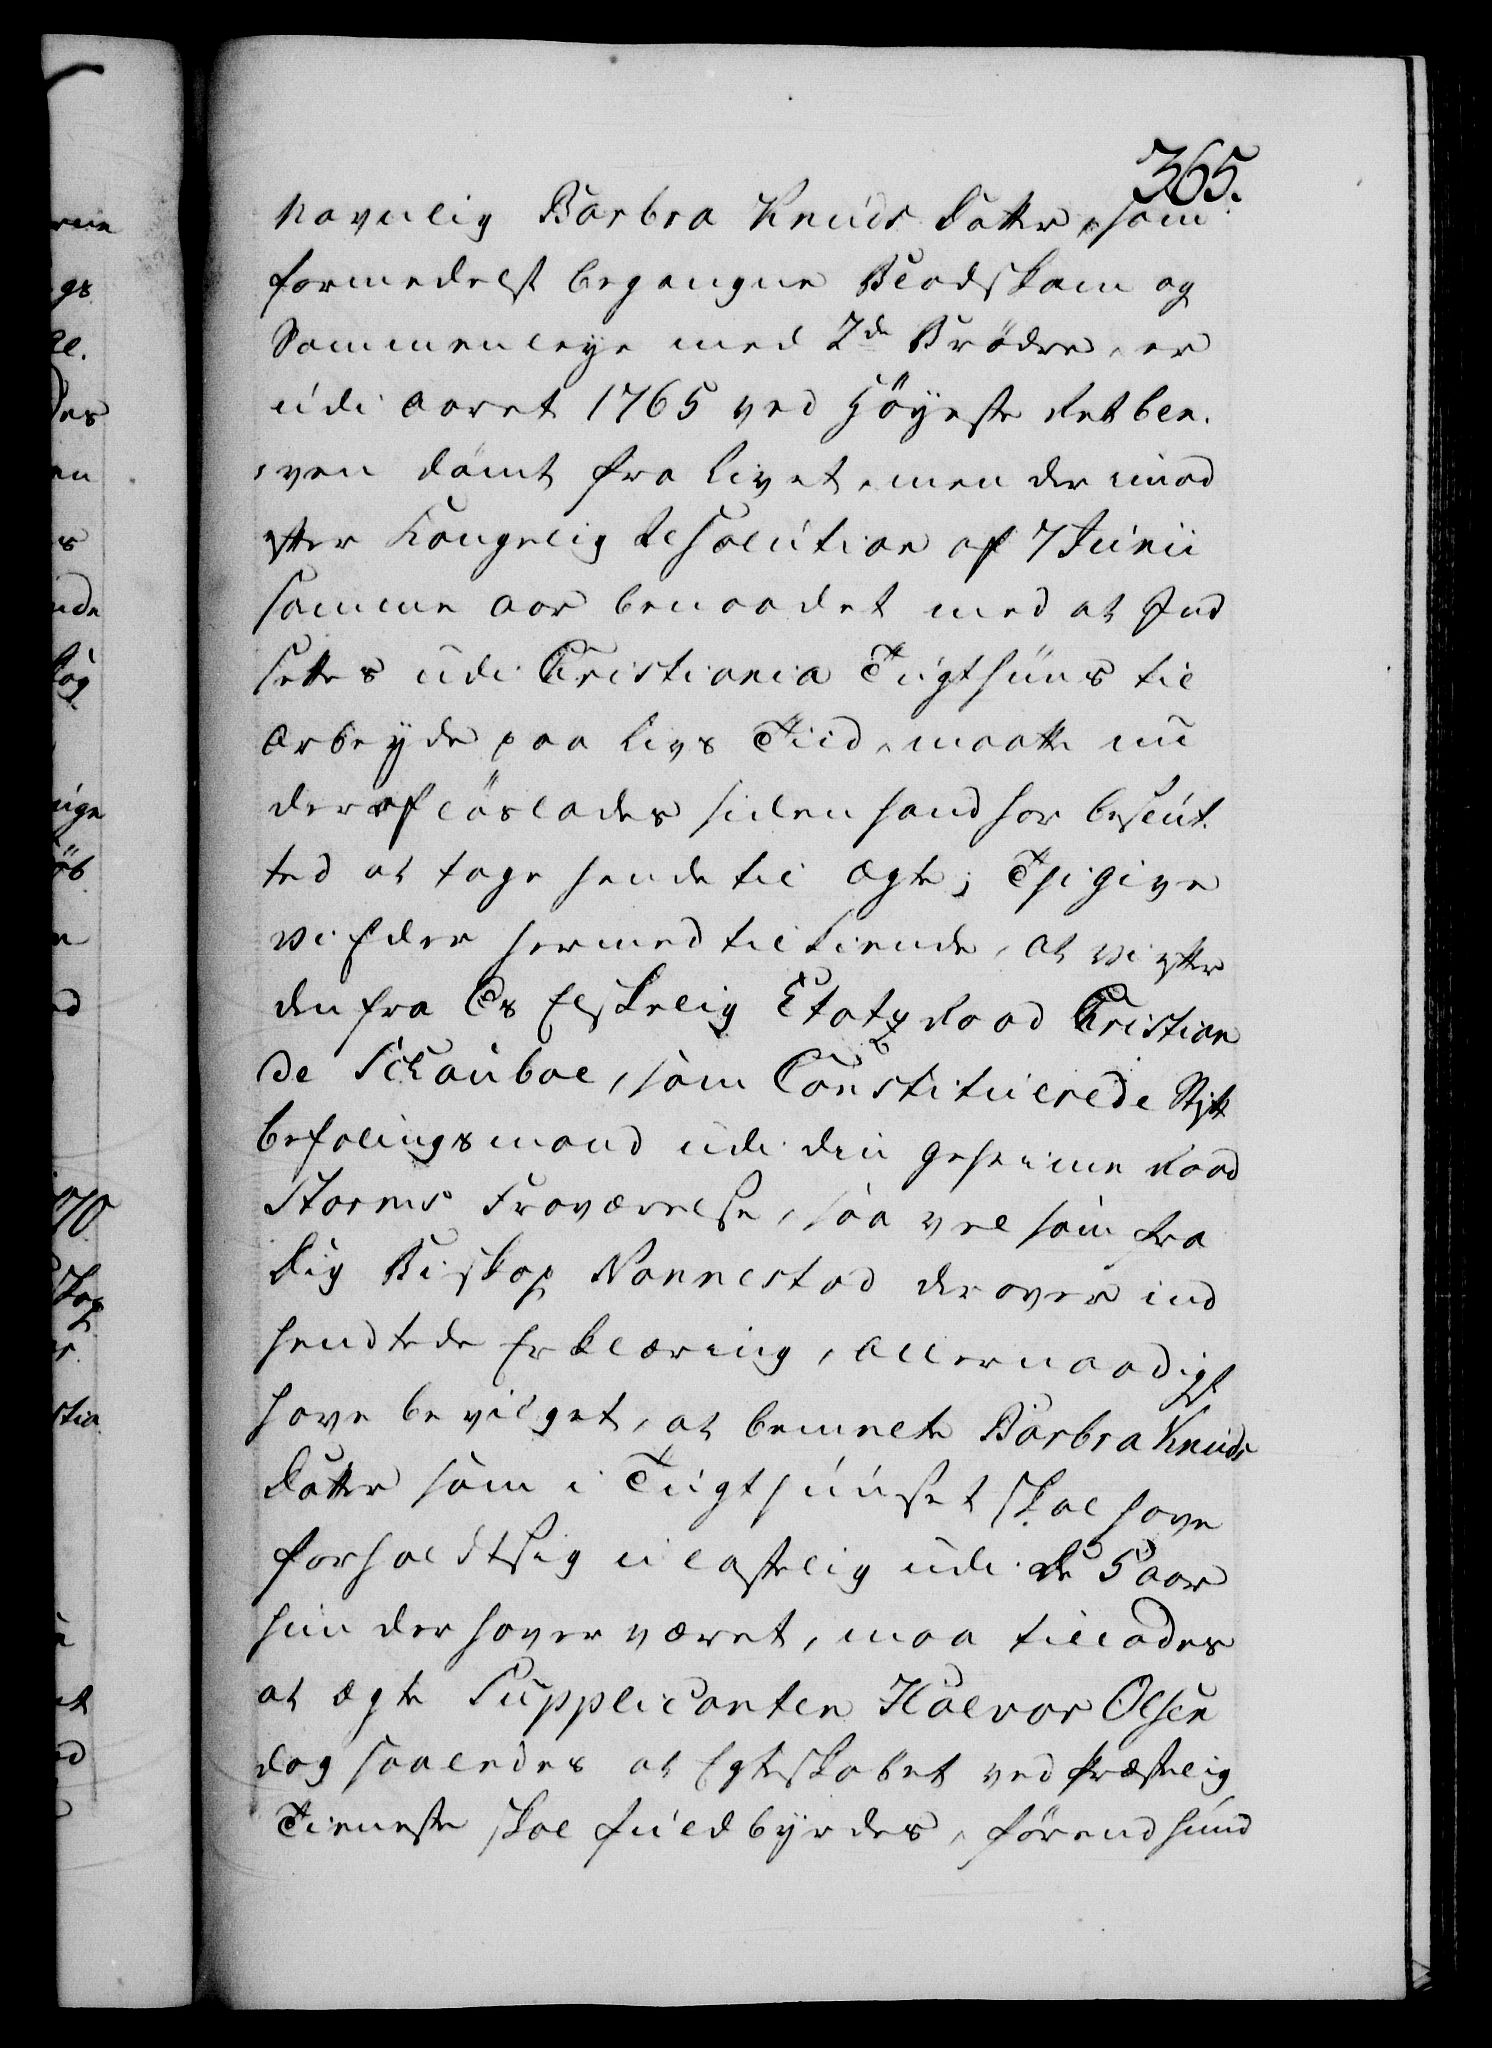 365.
navnlig Barbra Knuds Datter, som
formedelst begangne Blodskam og
Sammenleye med 2de Brødre, er
udi Aaret 1765 ved Höyeste Ret ble¬
ven dömt fra Livet, men der imod
efter Kongelig Resolution af 7 Junii
samme Aar benaadet med at Ind
settes udi Christiania Tugthuus til
Arbeyde paa Livs Tiid, maatte nu
deraf löslades siden hand har beslut¬
ted at tage hende til Ægte; Thi give
Vi Eder hermed tilkiende, at Vi efter
den fra Os Elskelig Etatz Raad Christian
de Schouboe, som Constituerede Stift
befalingsmand udi din Geheime Raad
Storms Fraværelse, saa vel som fra
Dig Biskop Nannestad derover ind
sendtede Erklæring, allernaadigst
have bevilget, at bemelte Barbra Knuds
Datter som i Tugthuuset skal have
forholdt sig ulastelig udi de 5 Aar
hun der haver været, maa tillades
at ægte Supplicanten Halvor Olsen
dog saaledes at Egteskabet ved Præstelig
Tieneste skal fuldbyrdes, förend hund